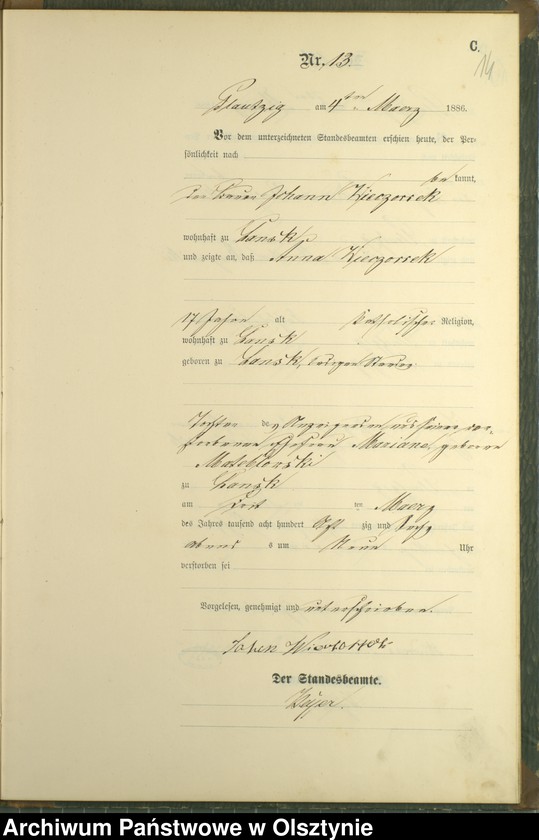 C.
14
Nr. 13.
Plautzig am 4ten Maerz 1886.
Vor dem unterzeichneten Standesbeamten erschien heute, der Per-
sönlichkeit nach
be kannt,
der Johann Wieczorrek
wohnhaft zu Lansk
und zeigte an, daß Anna Wieczorrek
17 Jahre alt katholischer Religion,
wohnhaft zu Lansk
geboren zu Lansk,
Tochter des Anzeigenden und seiner ver-
storbenen Ehefrau Mariane, geborene
zu Lansk
am ten Maerz
des Jahres tausend acht hundert Acht zig und Sechs
Abends um Neun Uhr
verstorben sei
Vorgelesen, genehmigt und unterschrieben.
Der Standesbeamte.
Archiwum Państwowe w Olsztynie